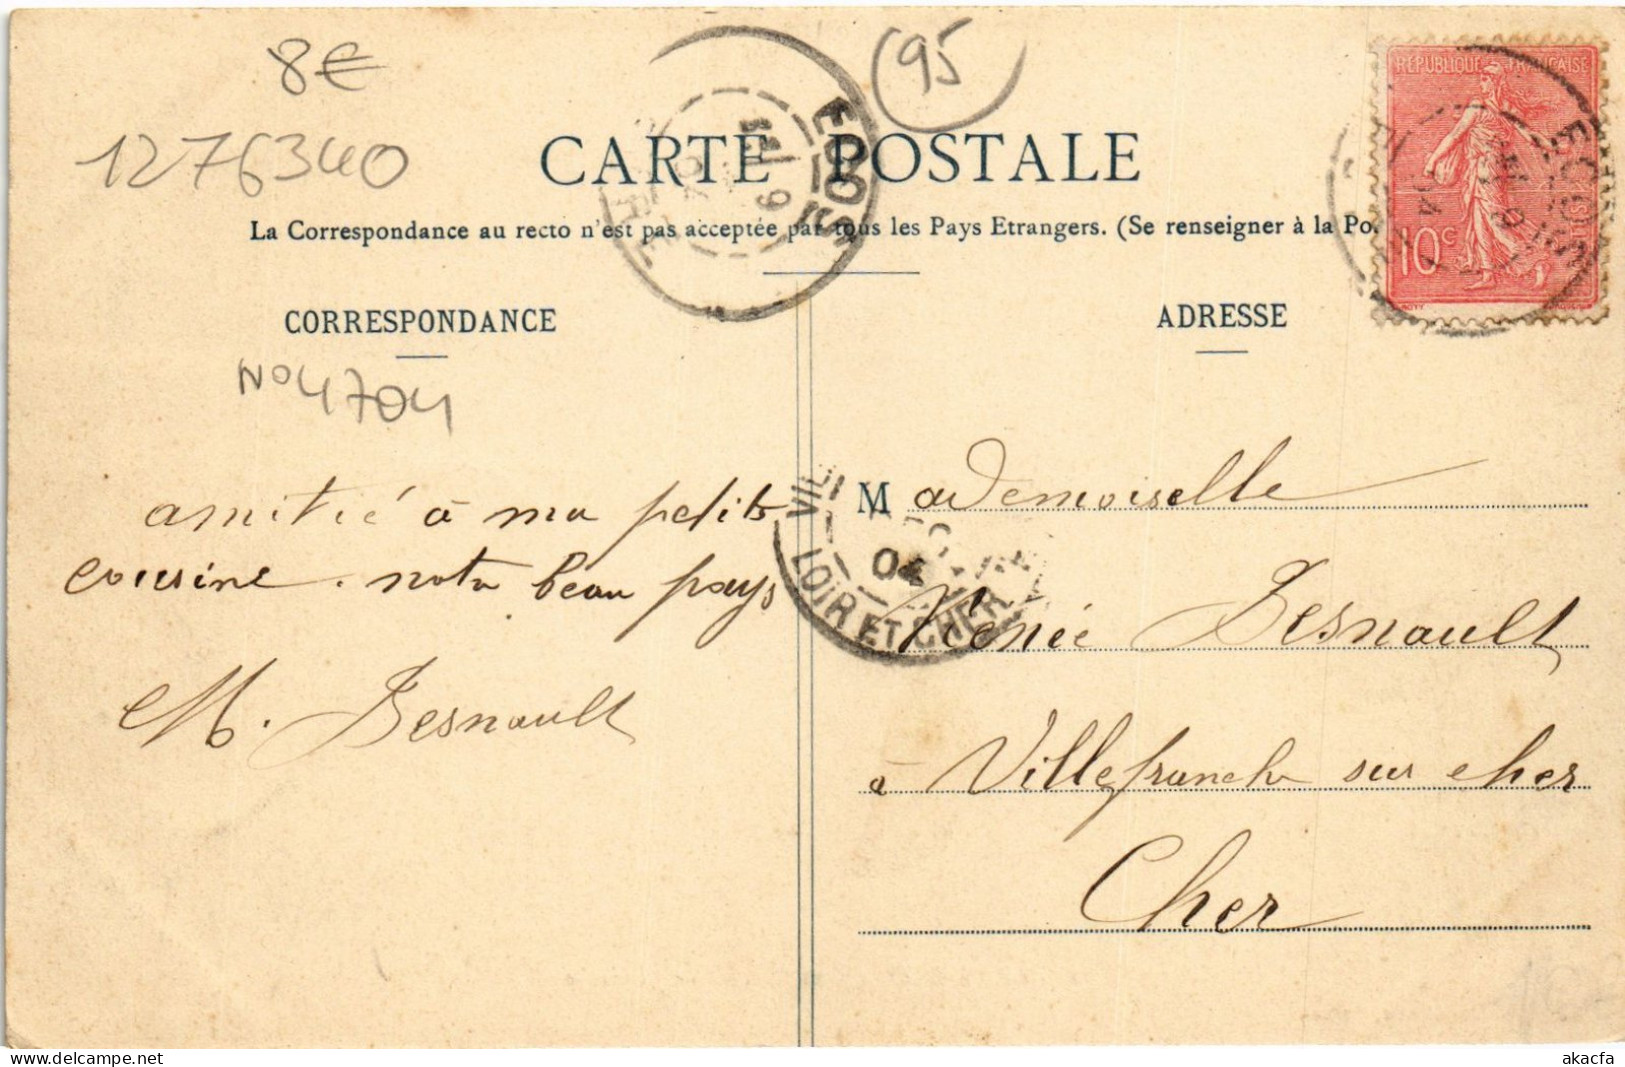 8€
95
1276340
CARTE POSTALE
La Correspondance au recto n'est pas acceptée par tous les Pays Etrangers. (Se renseigner à la Po
RÉPUBLIQUE FRANÇAISE
10c
ECOUEN
9
04
ECOUEN
9
CORRESPONDANCE
ADRESSE
No 4704
amitié à ma petite
cousine. notre beau pays
M. Besnault
LOIR ET CHER
04
Mademoiselle
Renée Besnault
à Villefranche sur cher
Cher
delcampe.net
akacfa